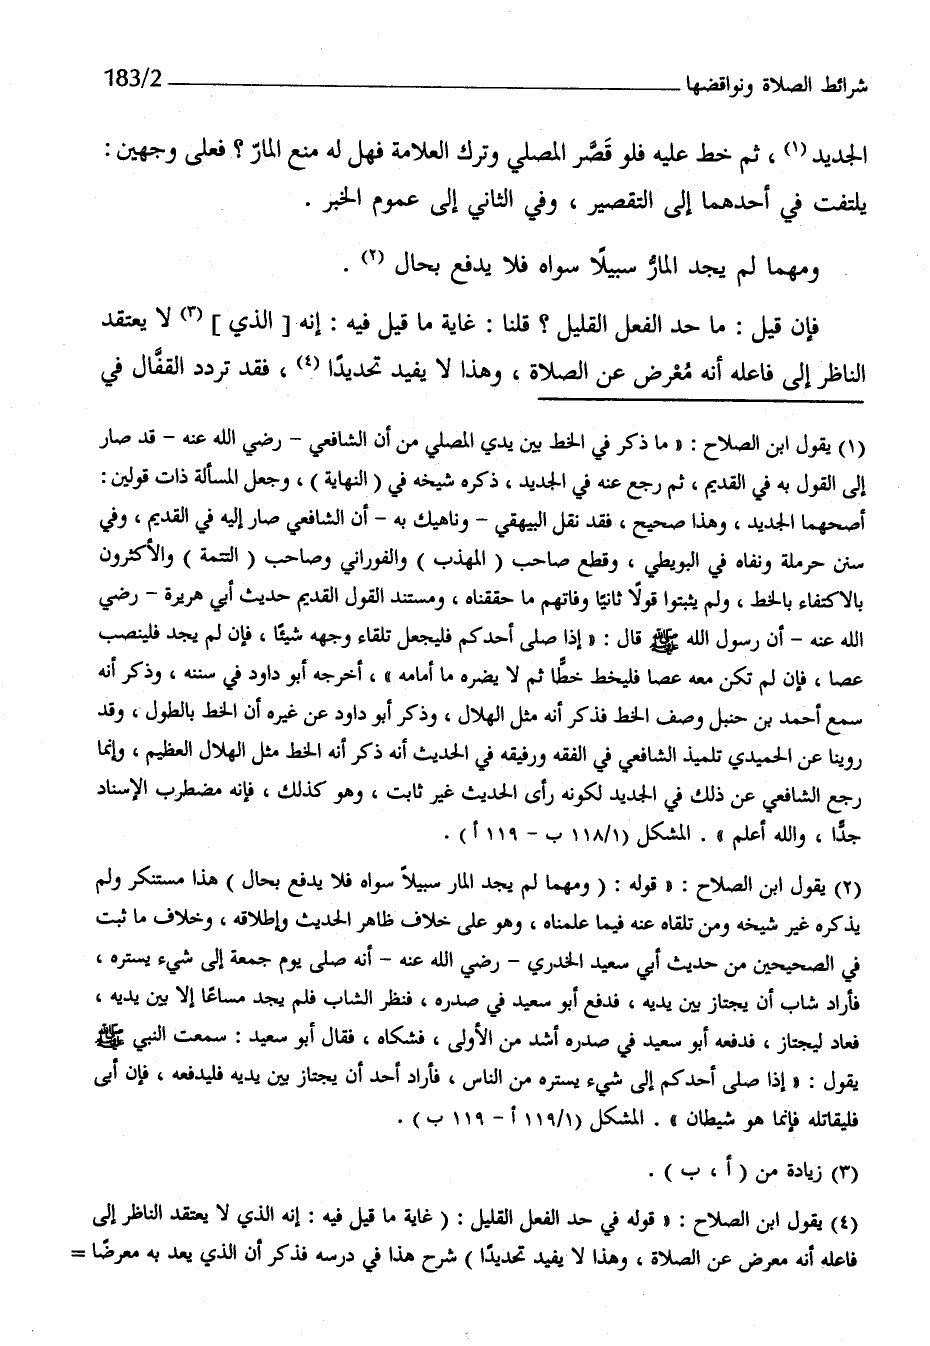 شرائط الصلاة ونواقضها 183/2
الجديد (١) ، ثم خط عليه فلو قَصَّر المصلي وترك العلامة فهل له منع المارّ ؟ فعلى وجهين :
يلتفت في أحدهما إلى التقصير ، وفي الثاني إلى عموم الخبر .
ومهما لم يجد المارُّ سبيلًا سواه فلا يدفع بحال (٢) .
فإن قيل : ما حد الفعل القليل ؟ قلنا : غاية ما قيل فيه : إنه [ الذي ] (٣) لا يعتقد
الناظر إلى فاعله أنه مُعْرض عن الصلاة ، وهذا لا يفيد تحديدًا (٤) ، فقد تردد القفَّال في
(١) يقول ابن الصلاح : « ما ذكر في الخط بين يدي المصلي من أن الشافعي - رضي الله عنه - قد صار
إلى القول به في القديم ، ثم رجع عنه في الجديد ، ذكره شيخه في ( النهاية ) ، وجعل المسألة ذات قولين :
أصحهما الجديد ، وهذا صحيح ، فقد نقل البيهقي - وناهيك به - أن الشافعي صار إليه في القديم ، وفي
سنن حرملة ونفاه في البويطي ، وقطع صاحب ( المهذب ) والفوراني وصاحب ( التتمة ) والأكثرون
بالاكتفاء بالخط ، ولم يثبتوا قولًا ثانيًا وفاتهم ما حققناه ، ومستند القول القديم حديث أبي هريرة - رضي
الله عنه - أن رسول الله ﷺ قال : « إذا صلى أحدكم فليجعل تلقاء وجهه شيئًا ، فإن لم يجد فلينصب
عصا ، فإن لم تكن معه عصا فليخط خطًّا ثم لا يضره ما أمامه » ، أخرجه أبو داود في سننه ، وذكر أنه
سمع أحمد بن حنبل وصف الخط فذكر أنه مثل الهلال ، وذكر أبو داود عن غيره أن الخط بالطول ، وقد
روينا عن الحميدي تلميذ الشافعي في الفقه ورفيقه في الحديث أنه ذكر أنه الخط مثل الهلال العظيم ، وإنما
رجع الشافعي عن ذلك في الجديد لكونه رأى الحديث غير ثابت ، وهو كذلك ، فإنه مضطرب الإسناد
جدًّا ، والله أعلم » . المشكل (١١٨/١ ب - ١١٩ أ ) .
(٢) يقول ابن الصلاح : « قوله : ( ومهما لم يجد المار سبيلاً سواه فلا يدفع بحال ) هذا مستنكر ولم
يذكره غير شيخه ومن تلقاه عنه فيما علمناه ، وهو على خلاف ظاهر الحديث وإطلاقه ، وخلاف ما ثبت
في الصحيحين من حديث أبي سعيد الخدري - رضي الله عنه - أنه صلى يوم جمعة إلى شيء يستره ،
فأراد شاب أن يجتاز بين يديه ، فدفع أبو سعيد في صدره ، فنظر الشاب فلم يجد مساغًا إلا بين يديه ،
فعاد ليجتاز ، فدفعه أبو سعيد في صدره أشد من الأولى ، فشكاه ، فقال أبو سعيد : سمعت النبي ﷺ
يقول : « إذا صلى أحدكم إلى شيء يستره من الناس ، فأراد أحد أن يجتاز بين يديه فليدفعه ، فإن أبى
فليقاتله فإنما هو شيطان » . المشكل (١١٩/١ أ - ١١٩ ب ) .
(٣) زيادة من ( أ ، ب ) .
(٤) يقول ابن الصلاح : « قوله في حد الفعل القليل : ( غاية ما قيل فيه : إنه الذي لا يعتقد الناظر إلى
فاعله أنه معرض عن الصلاة ، وهذا لا يفيد تحديدًا ) شرح هذا في درسه فذكر أن الذي يعد به معرضًا =